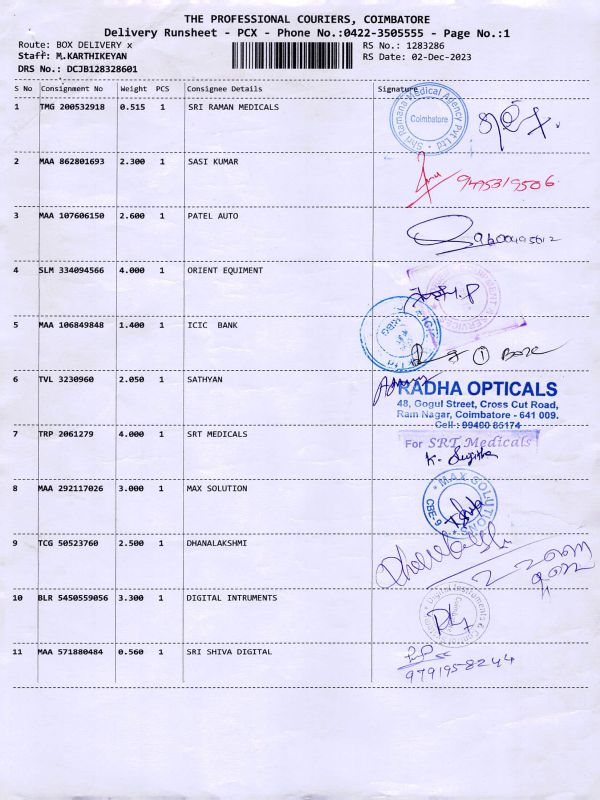 THE PROFESSIONAL COURIERS, COIMBATORE
Delivery Runsheet - PCX - Phone No.:0422-3505555 - Page No.:1
Route: BOX DELIVERY x RS No.: 1283286
Staff: M.KARTHIKEYAN RS Date: 02-Dec-2023
DRS No.: DCJB128328601
S No Consignment No Weight PCS Consignee Details Signature
1 TMG 200532918 0.515 1 SRI RAMAN MEDICALS
Shri Ramana Medical Agency Pvt Ltd
Coimbatore
2 MAA 862801693 2.300 1 SASI KUMAR
9495319506
3 MAA 107606150 2.600 1 PATEL AUTO
4 SLM 334094566 4.000 1 ORIENT EQUIMENT
5 MAA 106849848 1.400 1 ICIC BANK
6 TVL 3230960 2.050 1 SATHYAN
RADHA OPTICALS
48, Gogul Street, Cross Cut Road,
Ram Nagar, Coimbatore - 641 009.
Cell : 99490 85174
7 TRP 2061279 4.000 1 SRT MEDICALS
For SRT Medicals
K. Sugitha
8 MAA 292117026 3.000 1 MAX SOLUTION
MAX SOLUTION
CBE-9
9 TCG 50523760 2.500 1 DHANALAKSHMI
Dhanalakshmi
10 BLR 5450559056 3.300 1 DIGITAL INTRUMENTS
Digital Instruments &
11 MAA 571880484 0.560 1 SRI SHIVA DIGITAL
9791958244